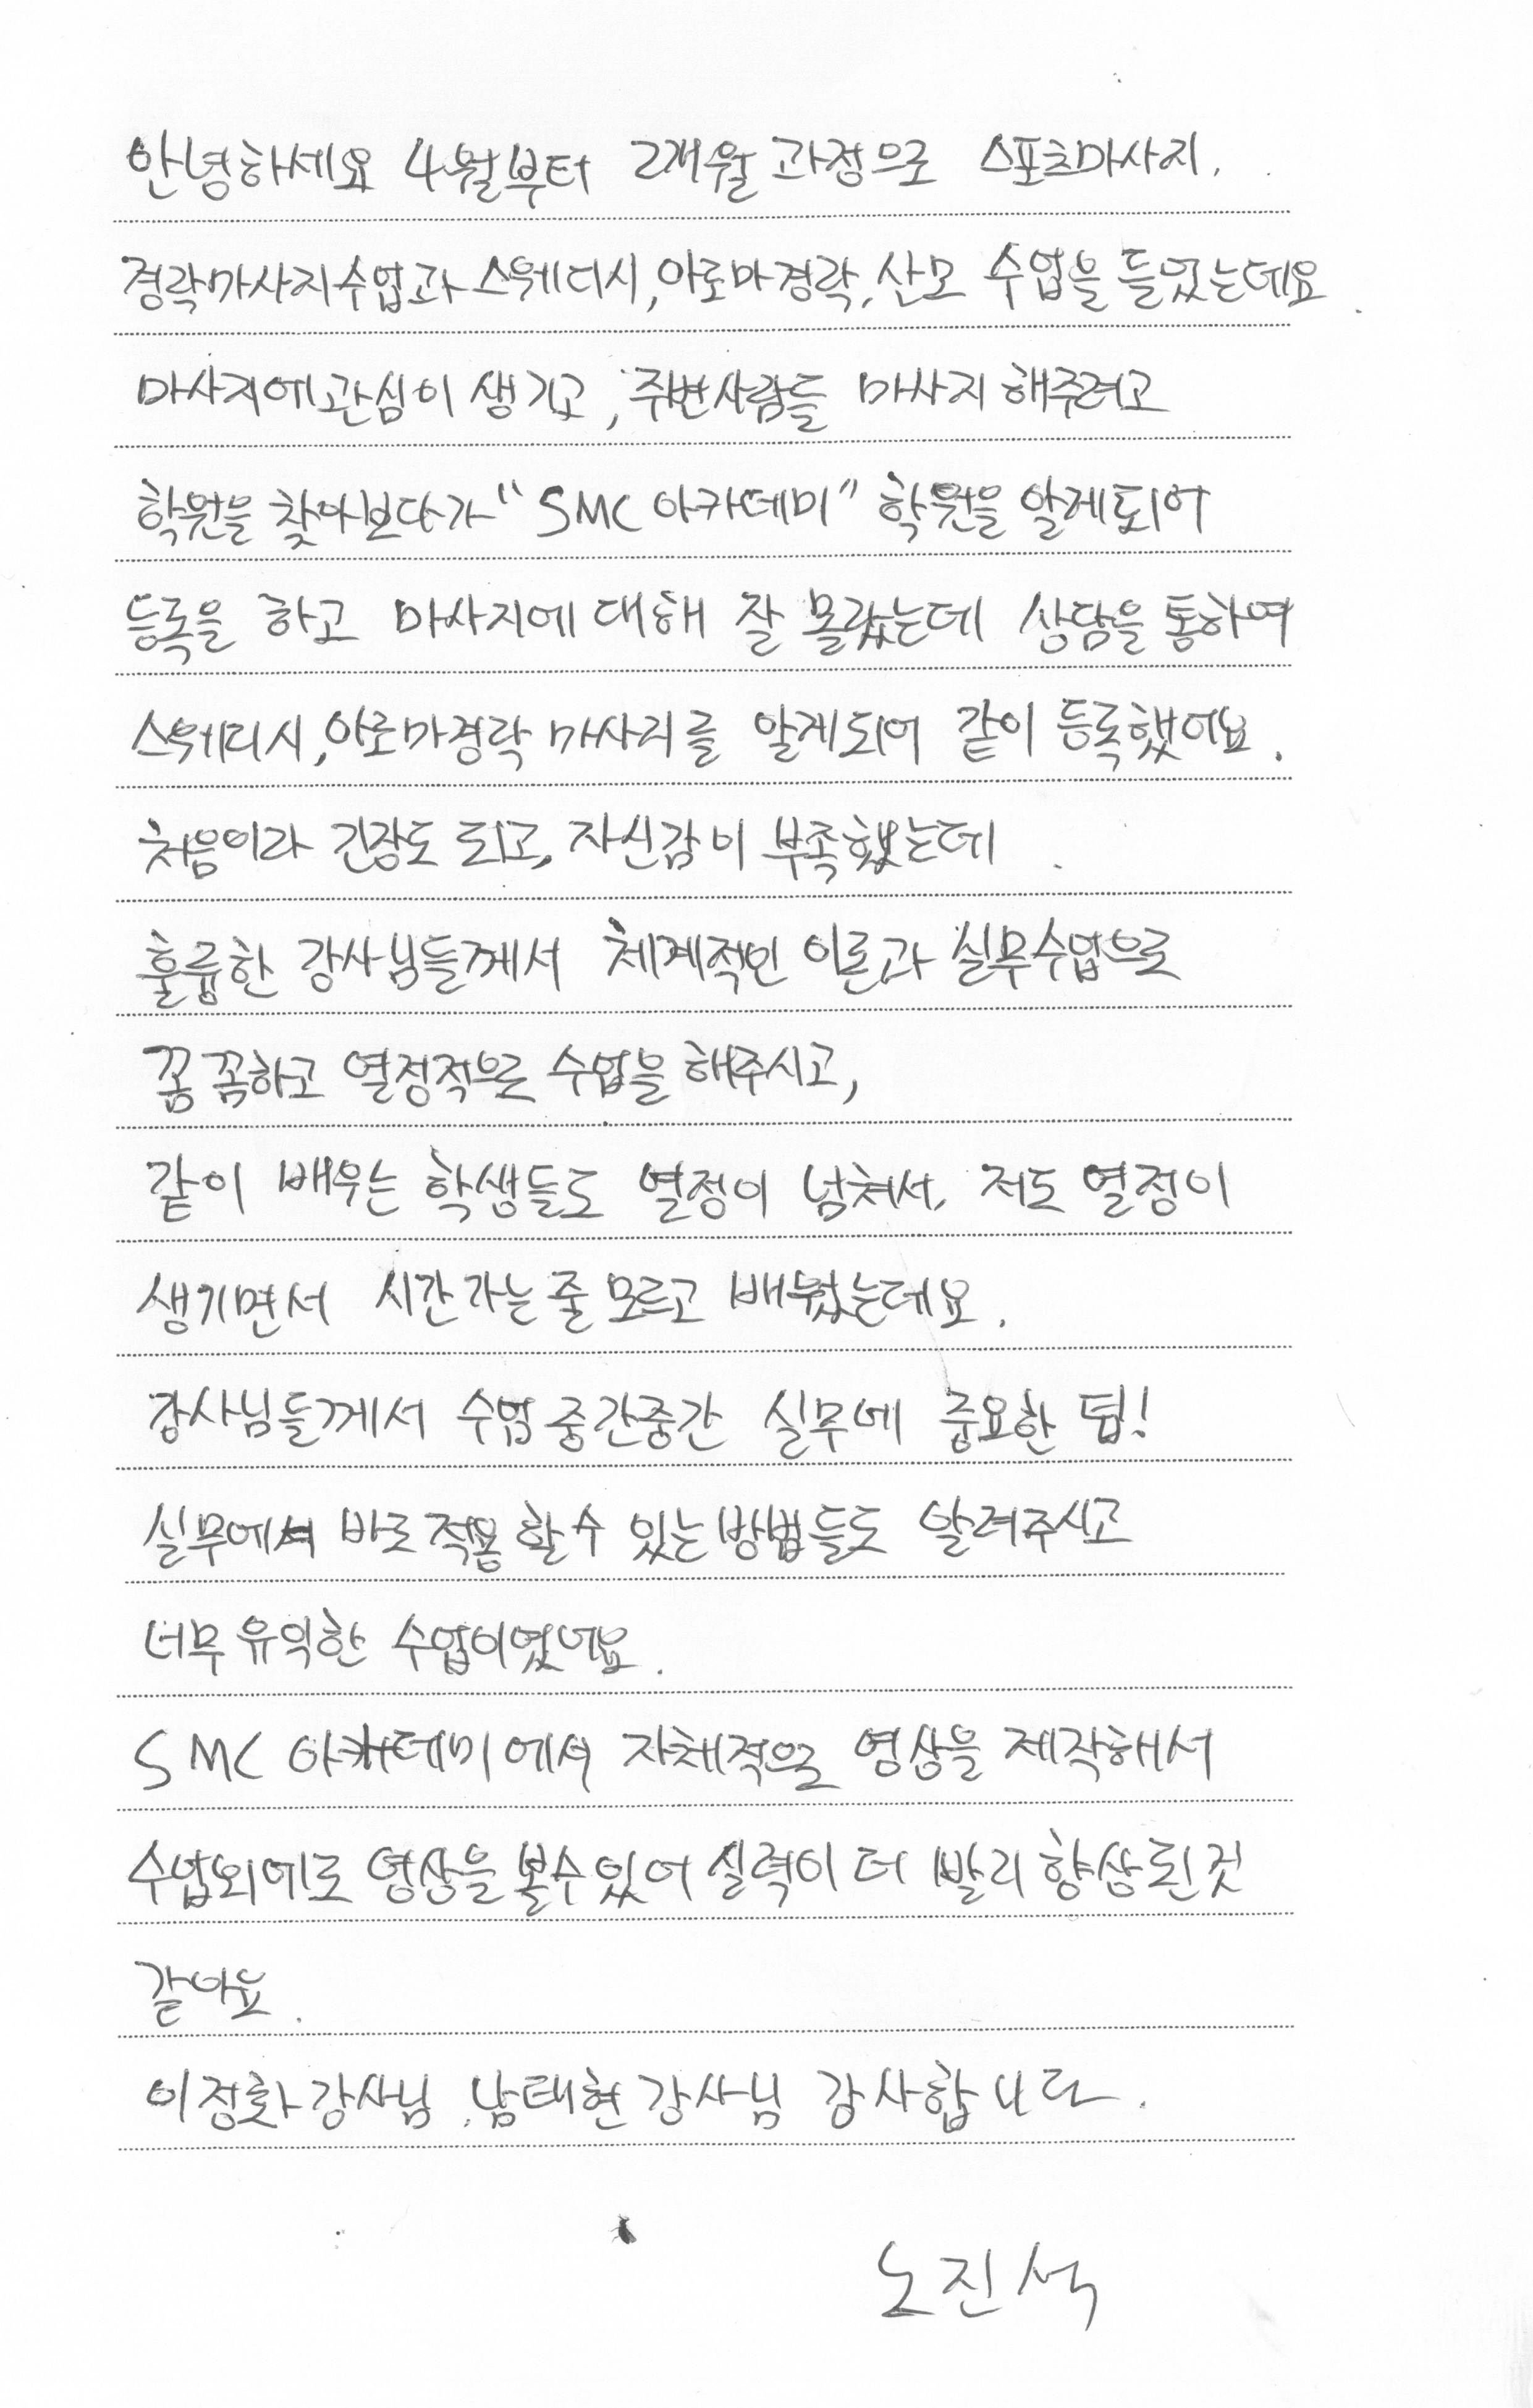 안녕하세요 4월부터 2개월 과정으로 스포츠마사지.
경락마사지수업과 스웨디시, 아로마경락, 산모 수업을 들었는데요.
마사지에 관심이 생기고, 주변사람들 마사지 해주려고
학원을 찾아보다가 "SMC 아카데미" 학원을 알게되어
등록을 하고 마사지에 대해 잘 몰랐는데 상담을 통하여
스웨디시, 아로마경락 마사지를 알게되어 같이 등록했어요.
처음이라 긴장도 되고, 자신감이 부족했는데.
훌륭한 강사님들께서 체계적인 이론과 실무수업으로
꼼꼼하고 열정적으로 수업을 해주시고,
같이 배우는 학생들도 열정이 넘쳐서, 저도 열정이
생기면서 시간가는줄 모르고 배웠는데요.
강사님들께서 수업 중간중간 실무에 중요한 팁!
실무에서 바로 적용 할수 있는 방법들도 알려주시고
너무 유익한 수업이였어요.
SMC 아카데미에서 자체적으로 영상을 제작해서
수업외에도 영상을 볼수있어 실력이 더 빨리 향상된것
같아요.
이정화 강사님, 남태현 강사님 감사합니다.
노진석